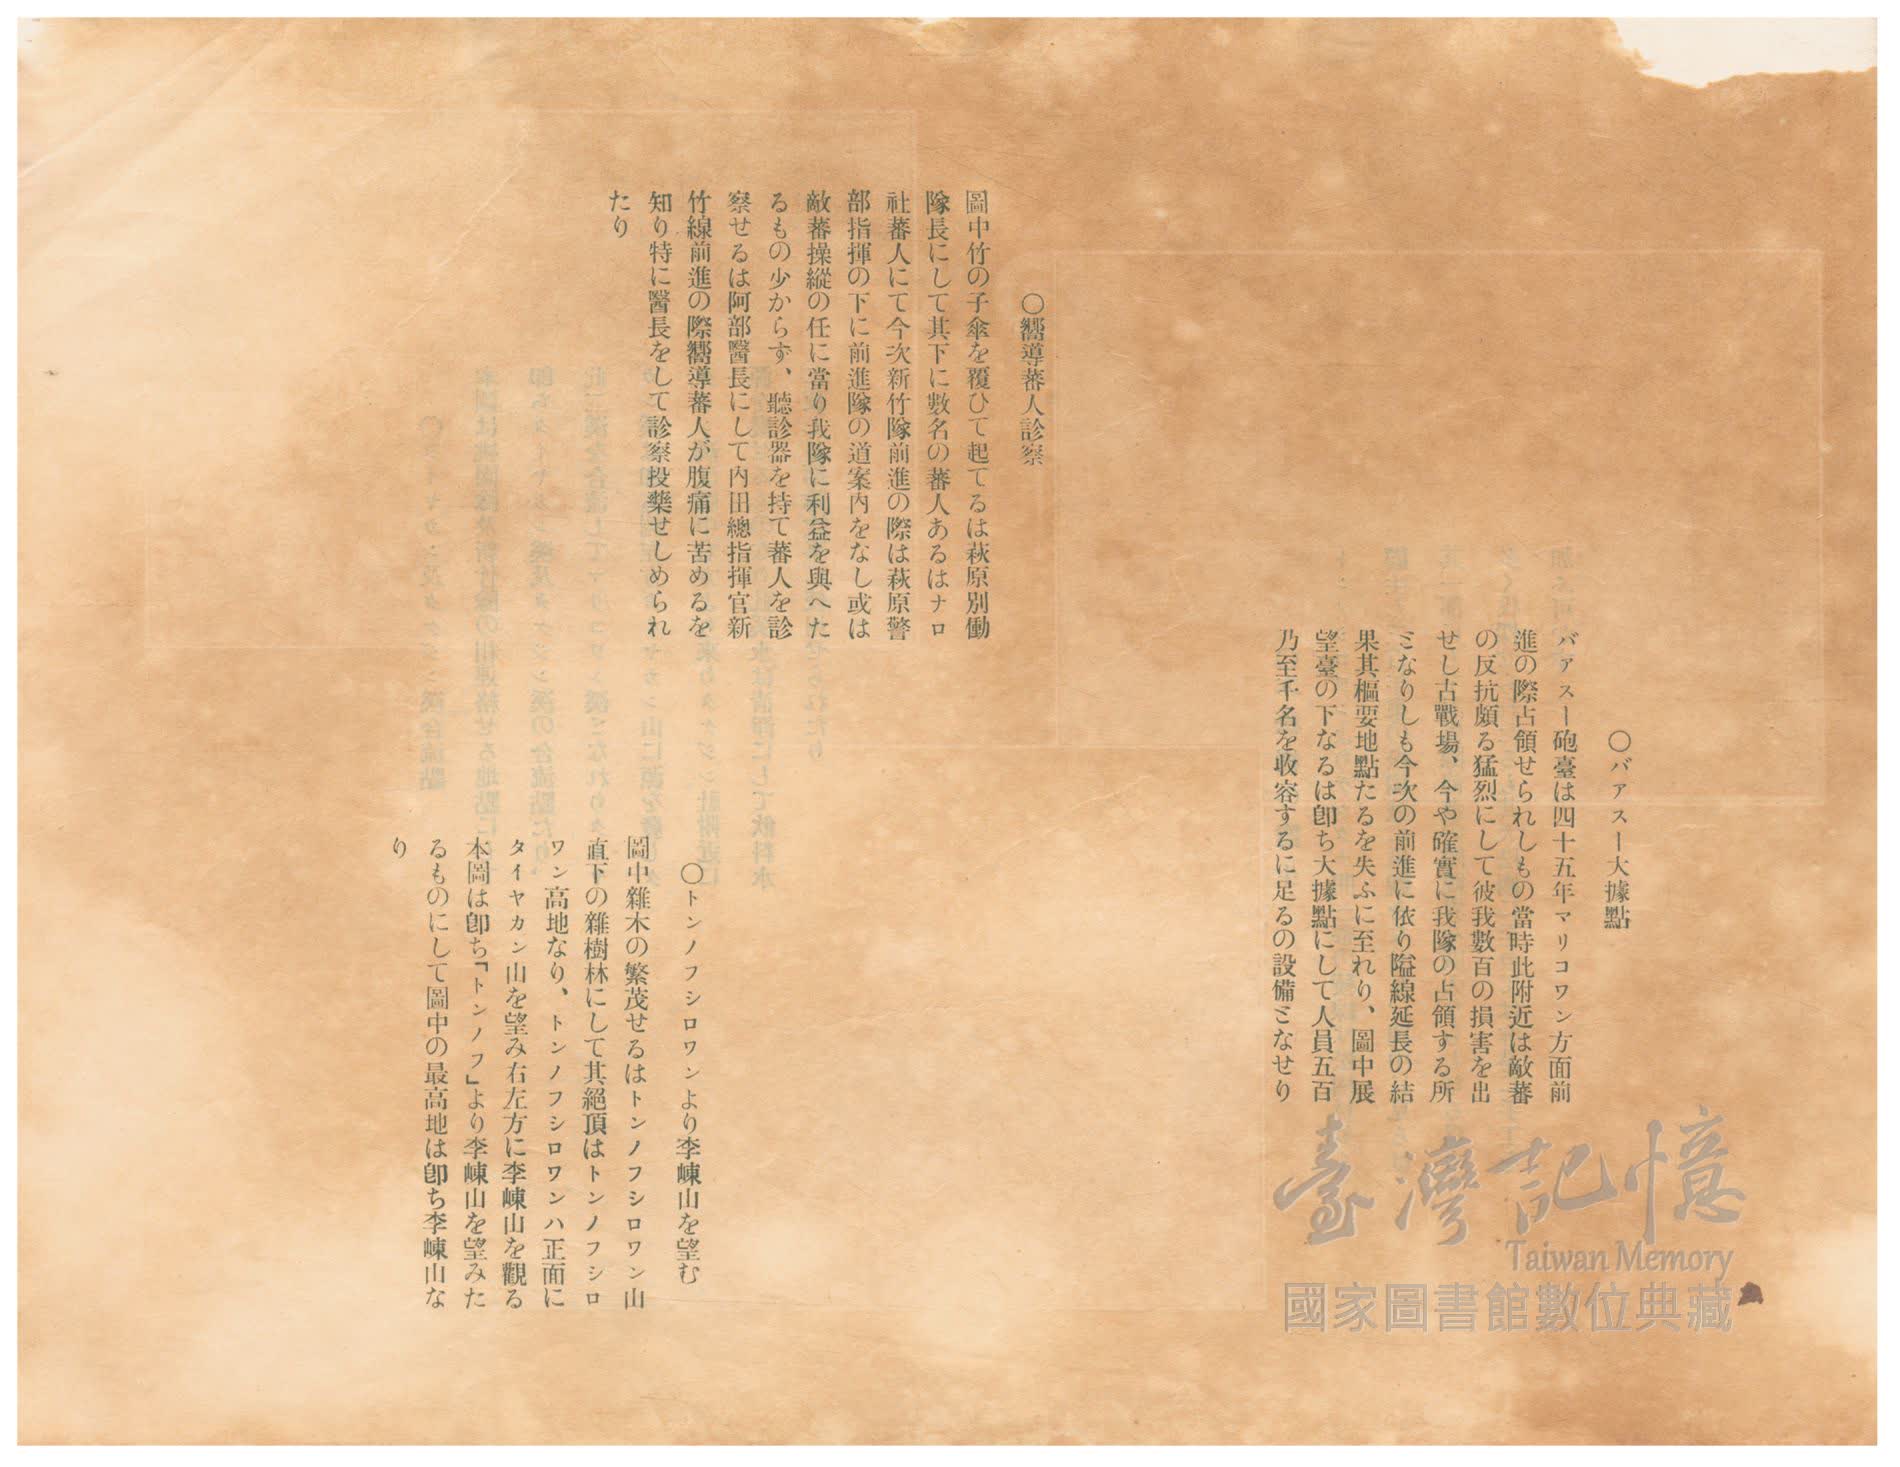 〇バアスー大據點
バアスー砲臺は四十五年マリコワン方面前
進の際占領せられしもの當時此附近は敵蕃
の反抗頗る猛烈にして彼我數百の損害を出
せし古戰場、今や確實に我隊の占領する所
ミなりしも今次の前進に依り隘線延長の結
果其樞要地點たるを失ふに至れり、圖中展
望臺の下なるは卽ち大據點にして人員五百
乃至千名を收容するに足るの設備ミなせり
〇嚮導蕃人診察
圖中竹の子傘を覆ひて起てるは萩原別働
隊長にして其下に數名の蕃人あるはナロ
社蕃人にて今次新竹隊前進の際は萩原警
部指揮の下に前進隊の道案內をなし或は
敵蕃操縱の任に當り我隊に利益を與へた
るもの少からず、聽診器を持て蕃人を診
察せるは阿部醫長にして內田總指揮官新
竹線前進の際嚮導蕃人が腹痛に苦めるを
知り特に醫長をして診察投藥せしめられ
たり
〇トンノフシロワンより李崠山を望む
圖中雜木の繁茂せるはトンノフシロワン山
直下の雜樹林にして其絕頂はトンノフシロ
ワン高地なり、トンノフシロワンハ正面に
タイヤカン山を望み右左方に李崠山を觀る
本圖は卽ち「トンノフ」より李崠山を望みた
るものにして圖中の最高地は卽ち李崠山な
り
臺灣記憶
Taiwan Memory
國家圖書館數位典藏